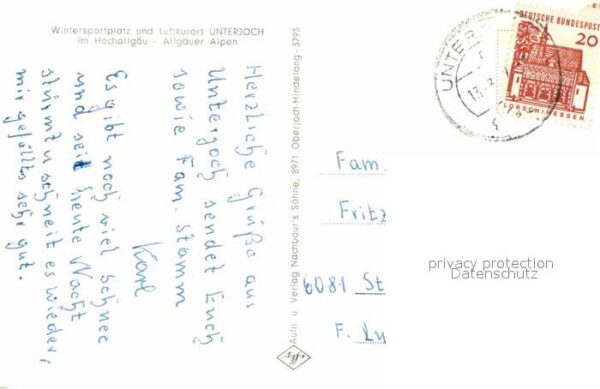 Wintersportplatz und Luftkurort UNTERJOCH
im Hochallgäu - Allgäuer Alpen
Herzliche Grüße aus
Unterjoch sendet Euch
sowie Fam. Stamm
Karl
Es gibt noch viel Schnee
und seit heute Nacht
stürmt u schneit es wieder,
mir gefällts sehr gut.
Aufn. u. Verlag Nachbaur's Söhne, 8971 Oberjoch-Hindelang - 3793
DEUTSCHE BUNDESPOST
20
LORSCH/HESSEN
UNTER
Fam.
Fritz
6081 St
F.
privacy protection
Datenschutz